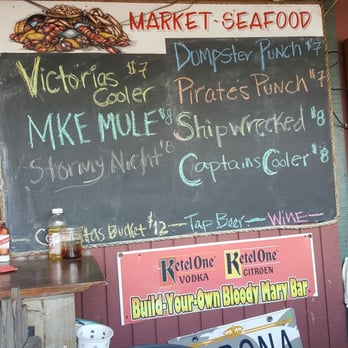 MARKET-SEAFOOD
Victorias $7
Cooler
MKE MULE $8
Stormy Night $8
Dumpster Punch $7
Pirate's Punch $7
Shipwrecked $8
Captains Cooler $8
Bucket $12 - Tap Beer - WINE -
Ketel One
VODKA
Ketel One
CITROEN
Build-Your-Own Bloody Mary Bar